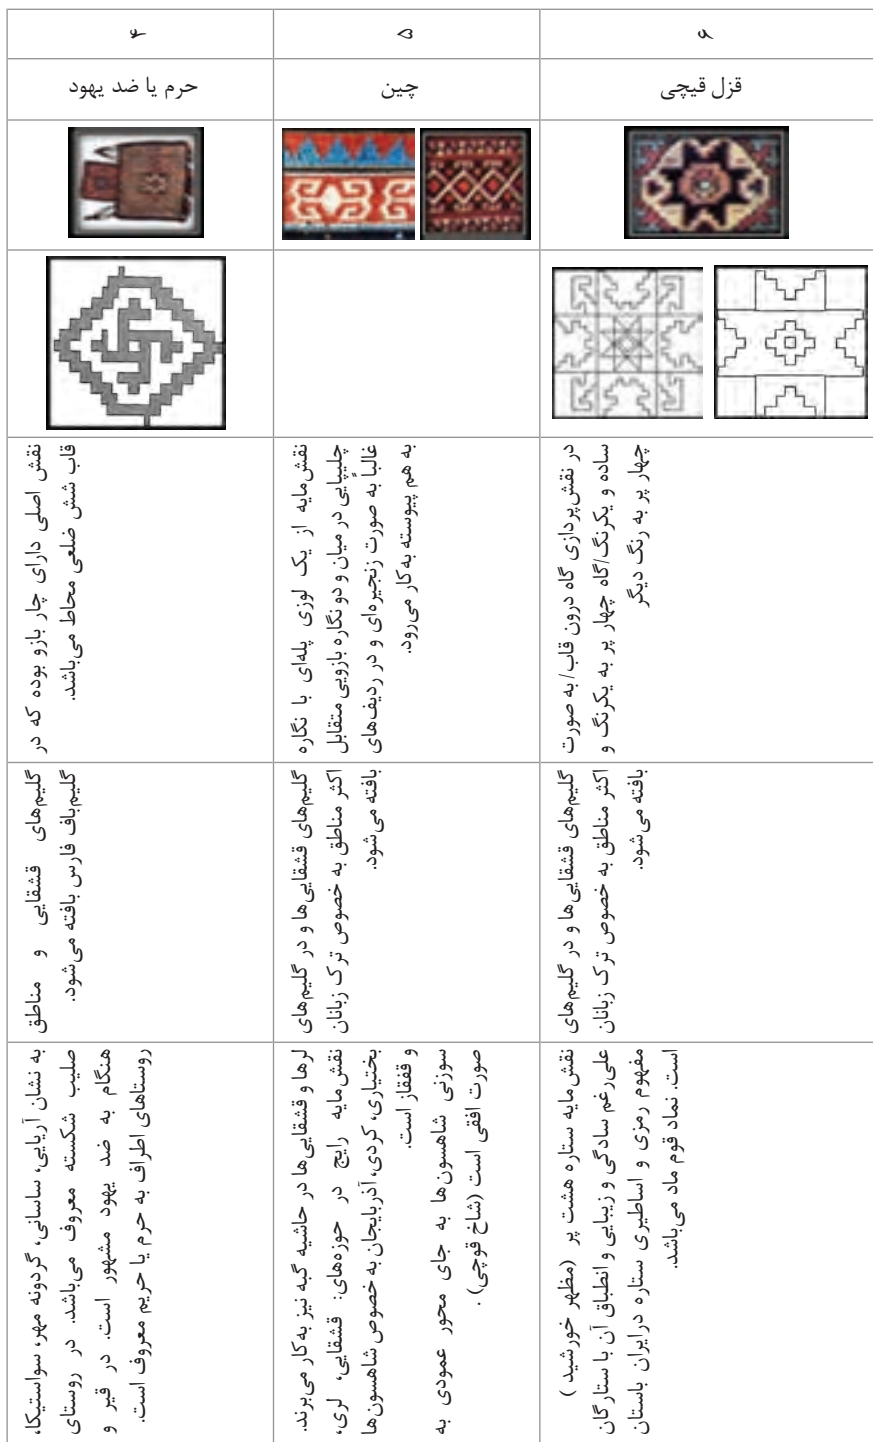 ۴
۵
۶
حرم یا ضد یهود
چین
قزل قیچی
نقش اصلی دارای چار بازو بوده که در
قاب شش ضلعی محاط می‌باشد.
نقش‌مایه از یک لوزی پله‌ای با نگاره
چلیپایی در میان و دو نگاره بازویی متقابل
غالباً به صورت زنجیره‌ای و در ردیف‌های
به هم پیوسته به‌کار می‌رود.
در نقش‌پردازی گاه درون قاب/ به صورت
ساده و یکرنگ/گاه چهار پر به یکرنگ و
چهار پر به رنگ دیگر
گلیم‌های قشقایی و مناطق
گلیم‌باف فارس بافته می‌شود.
گلیم‌های قشقایی‌ها و در گلیم‌های
اکثر مناطق به خصوص ترک زبانان
بافته می‌شود.
گلیم‌های قشقایی‌ها و در گلیم‌های
اکثر مناطق به خصوص ترک زبانان
بافته می‌شود.
به نشان آریایی، ساسانی، گردونه مهر، سواستیکا،
صلیب شکسته معروف می‌باشد. در روستای
هنگام به ضد یهود مشهور است. در قیر و
روستاهای اطراف به حرم یا حریم معروف است.
لرها و قشقایی‌ها در حاشیه گبه نیز به‌کار می‌برند.
نقش‌مایه رایج در حوزه‌های: قشقایی، لری،
بختیاری، کردی، آذربایجان به خصوص شاهسون‌ها
و قفقاز است.
سوزنی شاهسون‌ها به جای محور عمودی به
صورت افقی است (شاخ قوچی) .
نقش مایه ستاره هشت پر (مظهر خورشید )
علی‌رغم سادگی و زیبایی و انطباق آن با ستارگان
مفهوم رمزی و اساطیری ستاره درایران باستان
است. نماد قوم ماد می‌باشد.